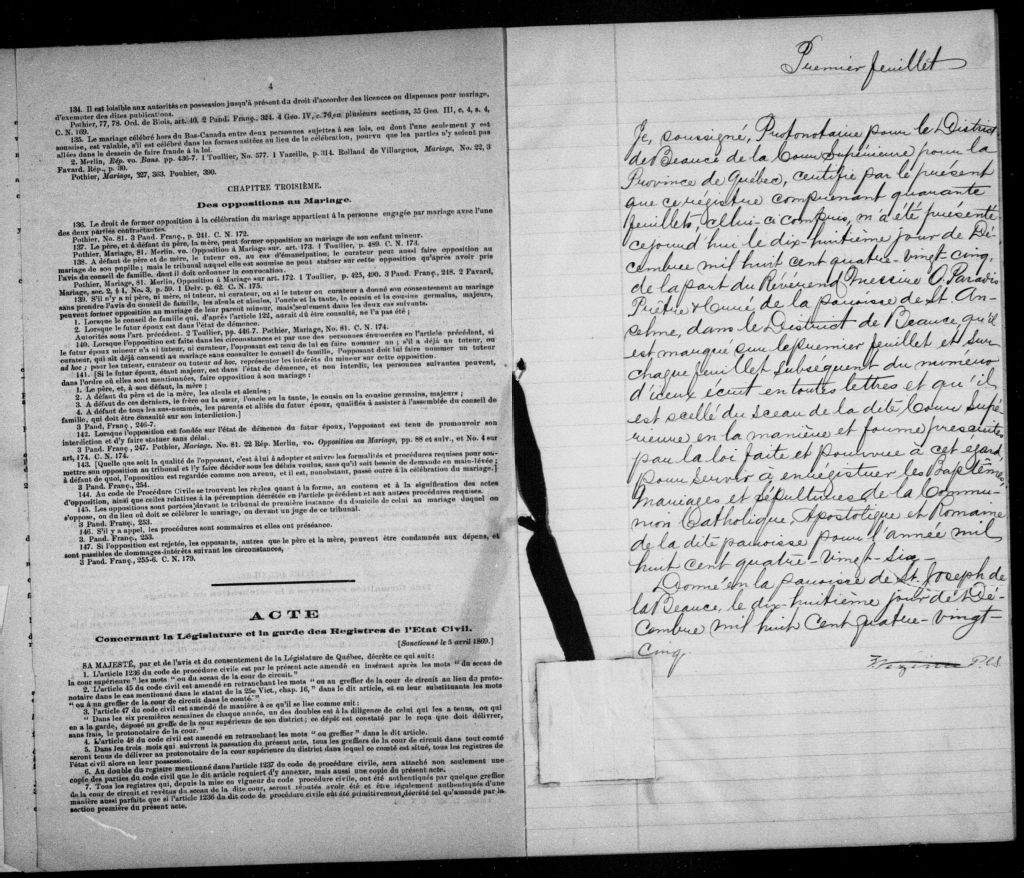 4
134. Il est loisible aux autorités en possession jusqu'à présent du droit d'accorder des licences ou dispenses pour mariage,
d'exempter des dites publications.
Pothier, 77, 78. Ord. de Blois, art. 40. 2 Pand. Franç., 324. 4 Geo. IV, c. 76 en plusieurs sections, 35 Geo. III, c. 4, s. 4,
C. N. 169.
135. Le mariage célébré hors du Bas-Canada entre deux personnes sujettes à ses lois, ou dont l'une seulement y est
soumise, est valable, s'il est célébré dans les formes usitées au lieu de la célébration, pourvu que les parties n'y soient pas
allées dans le dessein de faire fraude à la loi.
2. Merlin, Rép. vo. Bans. pp. 436-7. 1 Toullier, No. 577. 1 Vazeille, p. 314. Rolland de Villargues, Mariage, No. 22, 3
Favard. Rép., p. 30.
Pothier, Mariage, 327, 363. Pouhier, 390.
CHAPITRE TROISIÈME.
Des oppositions au Mariage.
136. Le droit de former opposition à la célébration du mariage appartient à la personne engagée par mariage avec l'une
des deux parties contractantes.
Pothier, No. 81. 3 Pand. Franç., p. 241. C. N. 172.
137. Le père, et à défaut du père, la mère, peut former opposition au mariage de son enfant mineur.
Pothier, Mariage, 81. Merlin, vo. Opposition à Mariage sur. art. 173. 1 Touiller, p. 489. C. N. 173.
138. A défaut de père et de mère, le tuteur ou, au cas d'émancipation, le curateur peut aussi faire opposition au
mariage de son pupille; mais le tribunal auquel elle est soumise ne peut statuer sur cette opposition qu'après avoir pris
l'avis du conseil de famille, dont il doit ordonner la convocation.
Pothier, Mariage, 81. Merlin, Opposition à Mariage sur art. 172. 1 Toullier, p. 425, 490. 3 Pand. Franç., 248. 2 Favard,
Mariage, sec. 2, § 1, No. 3, p. 59. 1 Delv. p. 62. C. N. 175.
139. S'il n'y a ni père, ni mère, ni tuteur, ni curateur, ou si le tuteur ou curateur a donné son consentement au mariage
sans prendre l'avis du conseil de famille, les aïeuls et aïeules, l'oncle et la tante, le cousin et la cousine germains, majeurs,
peuvent former opposition au mariage de leur parent mineur, mais seulement dans les deux cas suivants.
1. Lorsque le conseil de famille qui, d'après l'article 122, aurait dû être consulté, ne l'a pas été;
2. Lorsque le futur époux est dans l'état de démence.
Autorités sous l'art. précédent. 2 Toullier, pp. 446-7. Pothier, Mariage, No. 81. C. N. 174.
140. Lorsque l'opposition est faite dans les circonstances et par une des personnes énoncées en l'article précédent, si
le futur époux mineur n'a ni tuteur, ni curateur, l'opposant est tenu de lui en faire nommer un; s'il a déjà un tuteur, ou
curateur, qui ait déjà consenti au mariage sans consulter le conseil de famille, l'opposant doit lui faire nommer un tuteur
ad hoc; pour les tuteur, curateur ou tuteur ad hoc, représenter les intérêts du mineur sur cette opposition.
141. [Si le futur époux, étant majeur, est dans l'état de démence, et non interdit, les personnes suivantes peuvent,
dans l'ordre où elles sont mentionnées, faire opposition à son mariage :
1. Le père, et, à son défaut, la mère;
2. A défaut du père et de la mère, les aïeuls et aïeules;
3. A défaut de ces derniers, le frère ou la sœur, l'oncle ou la tante, le cousin ou la cousine germains, majeurs;
4. A défaut de tous les sus-nommés, les parents et alliés du futur époux, qualifiés à assister à l'assemblée du conseil de
famille, qui doit être consulté sur son interdiction.]
3 Pand. Franç., 246-7.
142. Lorsque l'opposition est fondée sur l'état de démence du futur époux, l'opposant est tenu de promouvoir son
interdiction et d'y faire statuer sans délai.
3 Pand. Franç., 247. Pothier, Mariage, No. 81. 22 Rép. Merlin, vo. Opposition au Mariage, pp. 88 et suiv., et No. 4 sur
art, 174. C. N. 174.
143. [Quelle que soit la qualité de l'opposant, c'est à lui à adopter et suivre les formalités et procédures requises pour sou-
mettre son opposition au tribunal et l'y faire décider sous les délais voulus, sans qu'il soit besoin de demande en main-levée;
à défaut de quoi, l'opposition est regardée comme non avenu, et il est, nonobstant, passé outre à la célébration du mariage.]
3 Pand. Franç., 254.
144. Au code de Procédure Civile se trouvent les règles quant à la forme, au contenu et à la signification des actes
d'opposition, ainsi que celles relatives à la péremption décrétée en l'article précédent et aux autres procédures requises.
145. Les oppositions sont portées devant le tribunal de première instance du domicile de celui au mariage duquel on
s'oppose, ou du lieu où doit se célébrer le mariage, ou devant un juge de ce tribunal.
3 Pand. Franç., 253.
146. S'il y a appel, les procédures sont sommaires et elles ont préséance.
3 Pand. Franç., 253.
147. Si l'opposition est rejetée, les opposants, autres que le père et la mère, peuvent être condamnés aux dépens, et
sont passibles de dommages-intérêts suivant les circonstances,
3 Pand. Franç., 255-6. C. N. 179.
ACTE
Concernant la Législature et la garde des Registres de l'Etat Civil.
[Sanctionné le 5 avril 1869.]
SA MAJESTÉ, par et de l'avis et du consentement de la Législature de Québec, décrète ce qui suit:
1. L'article 1236 du code de procédure civile est par le présent acte amendé en insérant après les mots " du sceau de
la cour supérieure " les mots " ou du sceau de la cour de circuit."
2. L'article 45 du code civil est amendé en retranchant les mots " ou au greffier de la cour de circuit au lieu du proto-
notaire dans le cas mentionné dans le statut de la 25e Vict., chap. 16, " dans le dit article, et en leur substituants les mots
" ou à un greffier de la cour de circuit dans le comté."
3. l'article 47 du code civil est amendé de manière à ce qu'il se lise comme suit:
" Dans les six premières semaines de chaque année, un des doubles est à la diligence de celui qui les a tenus, ou qui
en a la garde, déposé au greffe de la cour supérieurs de son district; ce dépôt est constaté par le reçu que doit délivrer,
sans frais, le protonotaire de la cour. "
4. L'article 48 du code civil est amendé en retranchant les mots " ou greffier " dans le dit article.
5. Dans les trois mois qui suivront la passation du présent acte, tous les greffiers de la cour de circuit dans tout comté
seront tenus de délivrer au protonotaire de la cour supérieure du district dans lequel ce comté est situé, tous les registres de
l'état civil alors en leur possession.
6. Au double du registre mentionné dans l'article 1237 du code de procédure civile, sera attaché non seulement une
copie des parties du code civil que le dit article requiert d'y annexer, mais aussi une copie du présent acte.
7. Tous les registres qui, depuis la mise en vigueur du code procédure civile, ont été authentiqués par quelque greffier
de la cour de circuit et revêtus du sceau de la dite cour, seront réputés avoir été et être légalement authentiqués d'une
manière aussi parfaite que si l'article 1236 du dit code de procédure civile eut été primitivement décrété tel qu'amendé par la
section première du présent acte.
Premier feuillet
Je, soussigné, Protonotaire pour le District
de Beauce de la Cour Supérieure pour la
Province de Québec, certifie par le présent
que ce registre comprenant quarante
feuillets, celui-ci compris, m'a été présenté
ce jourd'hui le dix-huitième jour de Dé-
cembre mil huit cent quatre-vingt-cinq,
de la part du Révérend Messire O. Paradis
Prêtre & Curé de la paroisse de St. An-
selme, dans le District de Beauce, qu'il
est marqué sur le premier feuillet et sur
chaque feuillet subséquent du numéro
d'iceux écrit en toutes lettres et qu'il
est scellé du sceau de la dite Cour Supé-
rieure en la manière et forme prescrites
par la loi faite et pourvue à cet égard
pour servir à enregistrer les Baptêmes,
Mariages et Sépultures de la Commu-
nion Catholique, Apostolique et Romaine
de la dite paroisse pour l'année mil
huit cent quatre-vingt-six-
Donné en la paroisse de St. Joseph de
la Beauce, le dix-huitième jour de Dé-
cembre mil huit cent quatre-vingt-
cinq.
Vézina P.C.S.